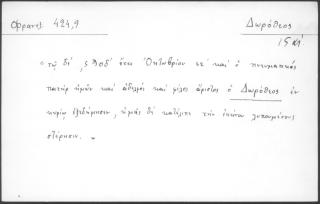 Σφραντζ. 424,9 Δωρόθεος
15 μ'
" τῷ δὲ ͵ϛϡοδʹ ἔτει Ὀκτωβρίου ιε' καὶ ὁ πνευματικὸς
πατὴρ ἡμῶν καὶ ἀδελφὸς καὶ φίλος ἄριστος ὁ Δωρόθεος ἐν
κυρίῳ ἐξεδήμησεν, ἡμᾶς δὲ κατέλιπε τὴν ἐκείνου λυπουμένους
στέρησιν. "